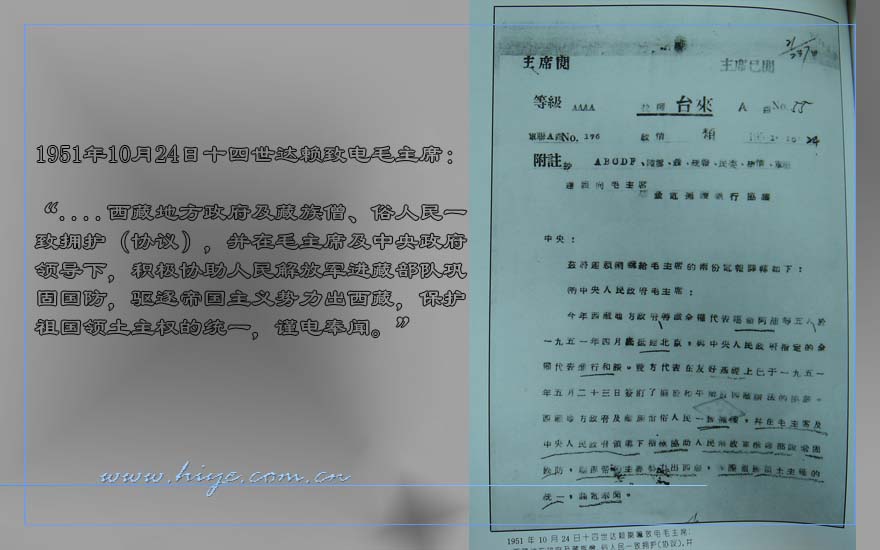 1951年10月24日十四世达赖致电毛主席：
“....西藏地方政府及藏族僧、俗人民一
致拥护（协议），并在毛主席及中央政府
领导下，积极协助人民解放军进藏部队巩
固国防，驱逐帝国主义势力出西藏，保护
祖国领土主权的统一，谨电奉闻。”
www.hiye.com.cn
主席閱
主席已閱
等級 AAAA 台來 A No. 55
No. 196 類 24
附註 ABGDF
達賴向毛主席
中央：
毛主席的兩份電報
中央人民政府毛主席：
今年西藏地方政府 全權代表 阿沛等五人於
一九五一年四月底抵達北京，與中央人民政府指定的全
權代表進行和談。雙方代表在友好基礎上已于一九五一
年五月二十三日簽訂了 和平 西藏辦法的協議。
西藏地方政府及藏族僧俗人民一致擁護，並在毛主席及
中央人民政府領導下積極協助人民解放軍進藏部隊鞏固
國防，驅逐帝國主義勢力出西藏，保護祖國領土主權的
統一，謹電奉聞。
1951 年 10 月 24 日十四世达赖喇嘛致电毛主席：
西藏地方政府及藏族僧、俗人民一致拥护(协议)，并